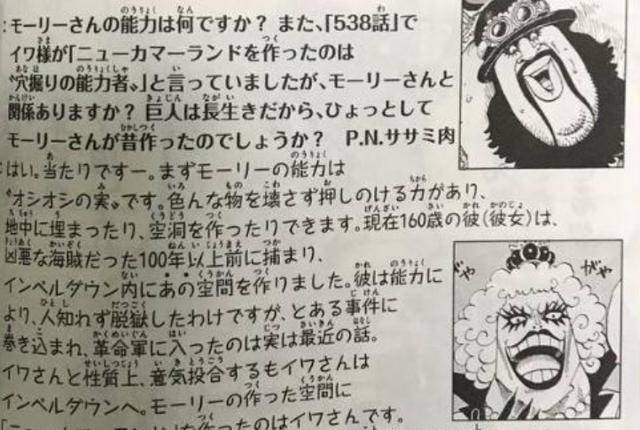 モーリーさんの能力は何ですか? また、「538話」で
イワ様が「ニューカマーランドを作ったのは
〝穴掘りの能力者〟」と言っていましたが、モーリーさんと
関係ありますか? 巨人は長生きだから、ひょっとして
モーリーさんが昔作ったのでしょうか? P.N.ササミ肉
はい。当たりですー。まずモーリーの能力は
〝オシオシの実〟です。色んな物を壊さず押しのける力があり、
地中に埋まったり、空洞を作ったりできます。現在160歳の彼(彼女)は、
凶悪な海賊だった100年以上前に捕まり、
インペルダウン内にあの空間を作りました。彼は能力に
より、人知れず脱獄したわけですが、とある事件に
巻き込まれ、革命軍に入ったのは実は最近の話。
イワさんと性質上、意気投合するもイワさんは
インペルダウンへ。モーリーの作った空間に
を作ったのはイワさんです。
ぎゃ
がゃ